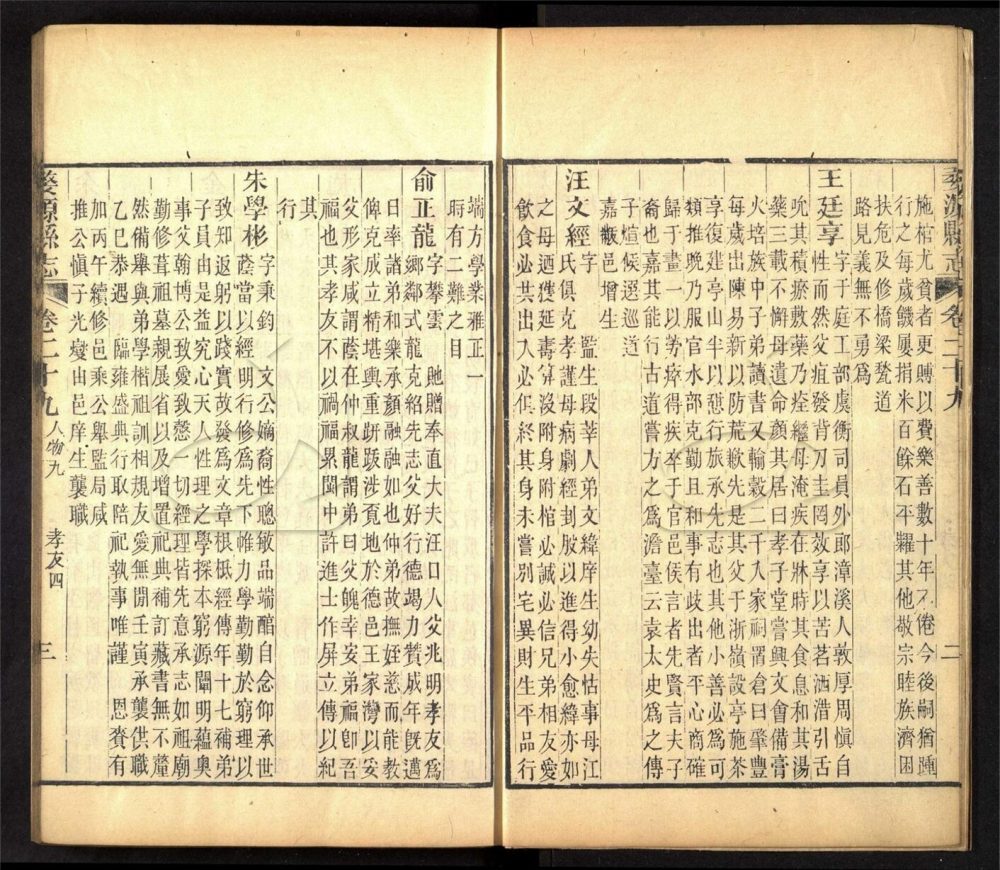 婺源縣志 卷二十九 二
施棺尤貧者更賻以費樂善數十年不倦今後嗣猶踵
行之每歲饑屢捐米百餘石平糶其他敬宗睦族濟困
扶危及修橋梁甃道
路見義無不勇為
王廷享字于庭工部虞衡司員外郎漳溪人敦厚周慎自
性而然父疽發背刀圭罔效享以苦茗洒浩引舌
吮其積瘀敷藥乃痊繼母淹疾在牀時其食息和其湯
藥三載不懈母遺命顏其居曰孝子堂嘗興文會備膏
火培族中子弟讀書又輸穀二千入家祠詺倉曰肇豐
每歲出陳易新以防荒歉先是其父于浙嶺設亭施茶
享復建亭山半以憩行旅承先志也其他小善必為可
類推晚乃服官水部克勤且和事有歧出者平心商確
歸于畫一以勞瘁得疾卒于官邑侯言者先賢言夫子
裔也嘉其能行古道嘗方之為澹臺云袁太史為之傳
子煊候選巡道
嘉猷邑增生
汪文經字 監生段莘人弟文緯庠生幼失怙事母江
氏俱克孝謹母病劇經封股以進得小愈緯亦如
之母迺獲延壽算沒附身附棺必誠必信兄弟相友愛
飲食必共出入必俱終其身未嘗別宅異財生平品行
端方學業雅正一
時有二難之目
俞正龍字攀雲貤贈奉直大夫汪口人父兆明孝友為
鄉鄰式龍克紹先志父好行德竭力贊成年既邁
日率諸弟和樂承顏融融如也仲弟故撫姪慈而能教
俾克成立精堪輿重跰跋涉覓地於德邑王家灣以妥
父形家咸謂蔭在仲叔龍謂弟曰父魄幸安弟福卽吾
福也其孝友不以禍福累閩中許進士作屏立傳以紀
其
行
朱學彬字秉鈞 文公嫡裔性聰敏品端酷自念仰承世
蔭當以經明行修為先下帷力學勤勤於窮理以
致知返躬以踐實故發為文章根柢經傳年十七補弟
子員由是益究心天人性理之學探本窮源闡明蘊奥
事父翰博公致愛致慤一切經理皆先意承志如祖廟
勤修葺祖墓親展省以及增置祀典補訂藏書無不釐
然備舉與弟學楷祖訓相規友愛無間壬寅承襲供職
乙巳恭遇 臨雍盛典行取陪 祀執事唯謹 恩賚有
加丙午續修邑乘公舉監局咸
推公慎子光燮由邑庠生襲職
婺源縣志 卷二十九 人物九 孝友四 三